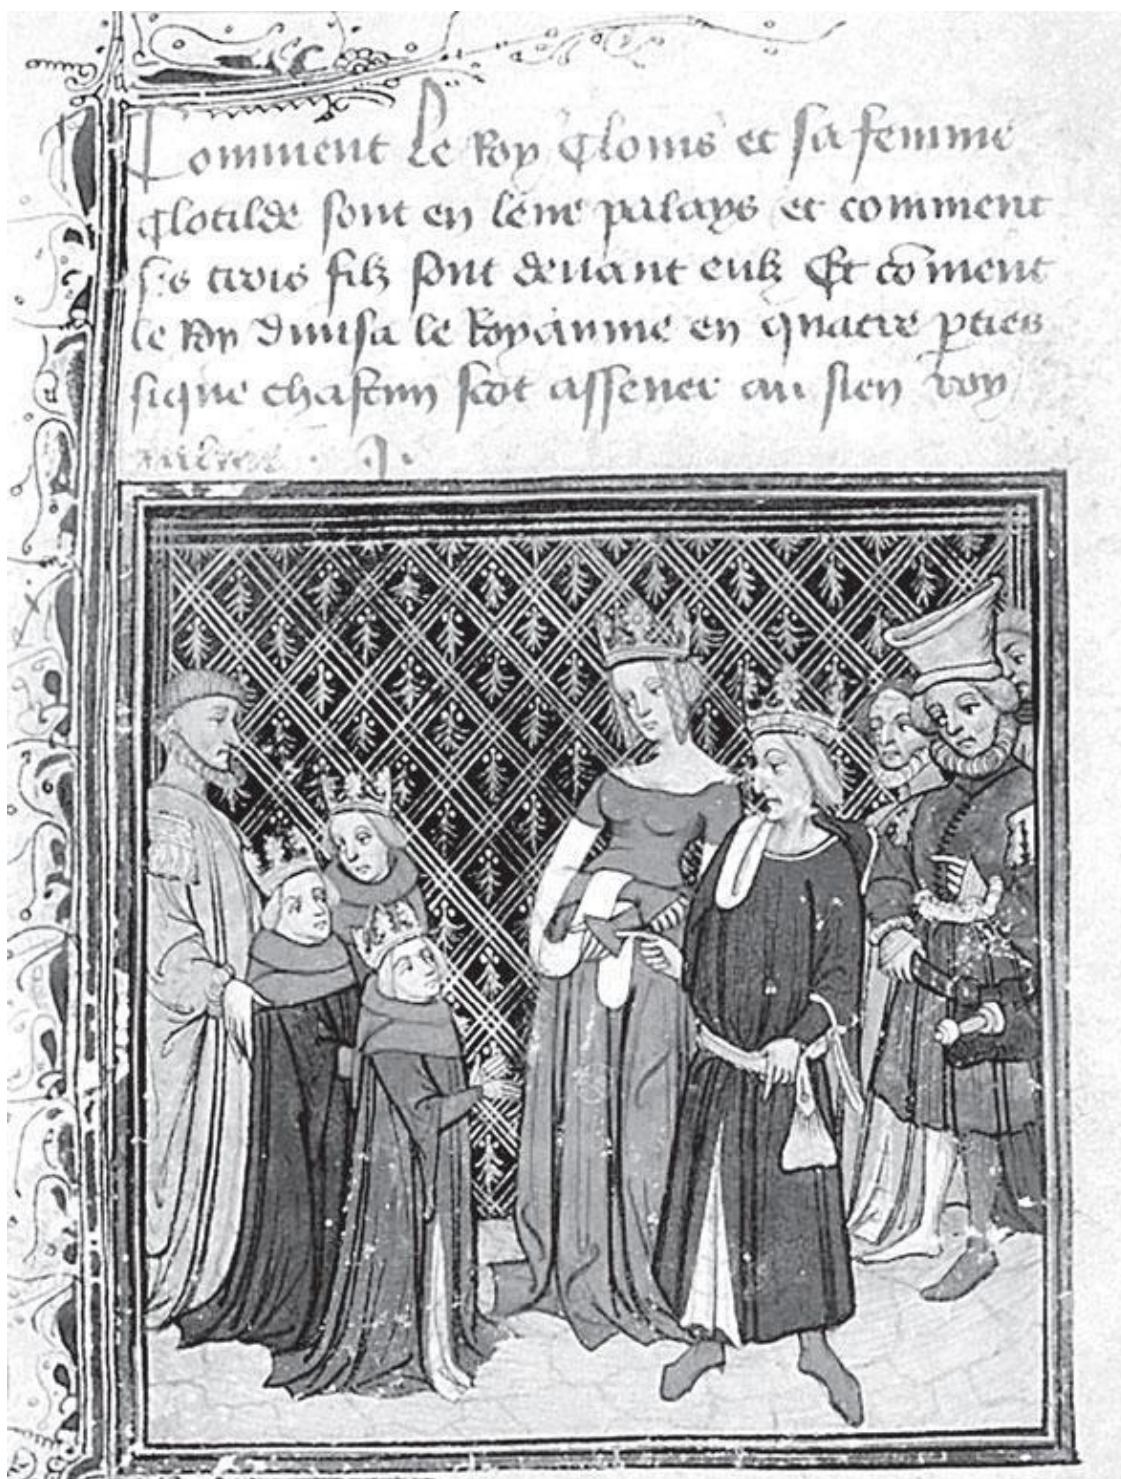 Comment le Roy Clouis et sa femme
Clotilde sont en leur palays et comment
ses trois filz sont deuant eulz Et cōment
le Roy diuisa le Royaume en quatre pties
sique chascun scot assener au sien roy